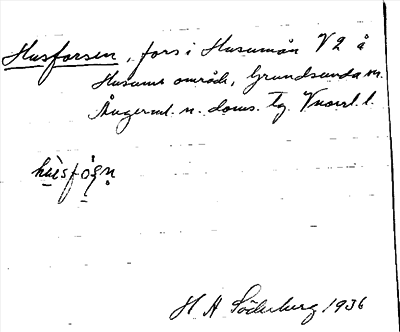 Husforsen, fors i Husumån V2 å
Husums område, Grundsunda sn.
Ångerml. n. doms. tg. Vnorrl. l.
hùsfɷşņ
H A Söderberg 1936